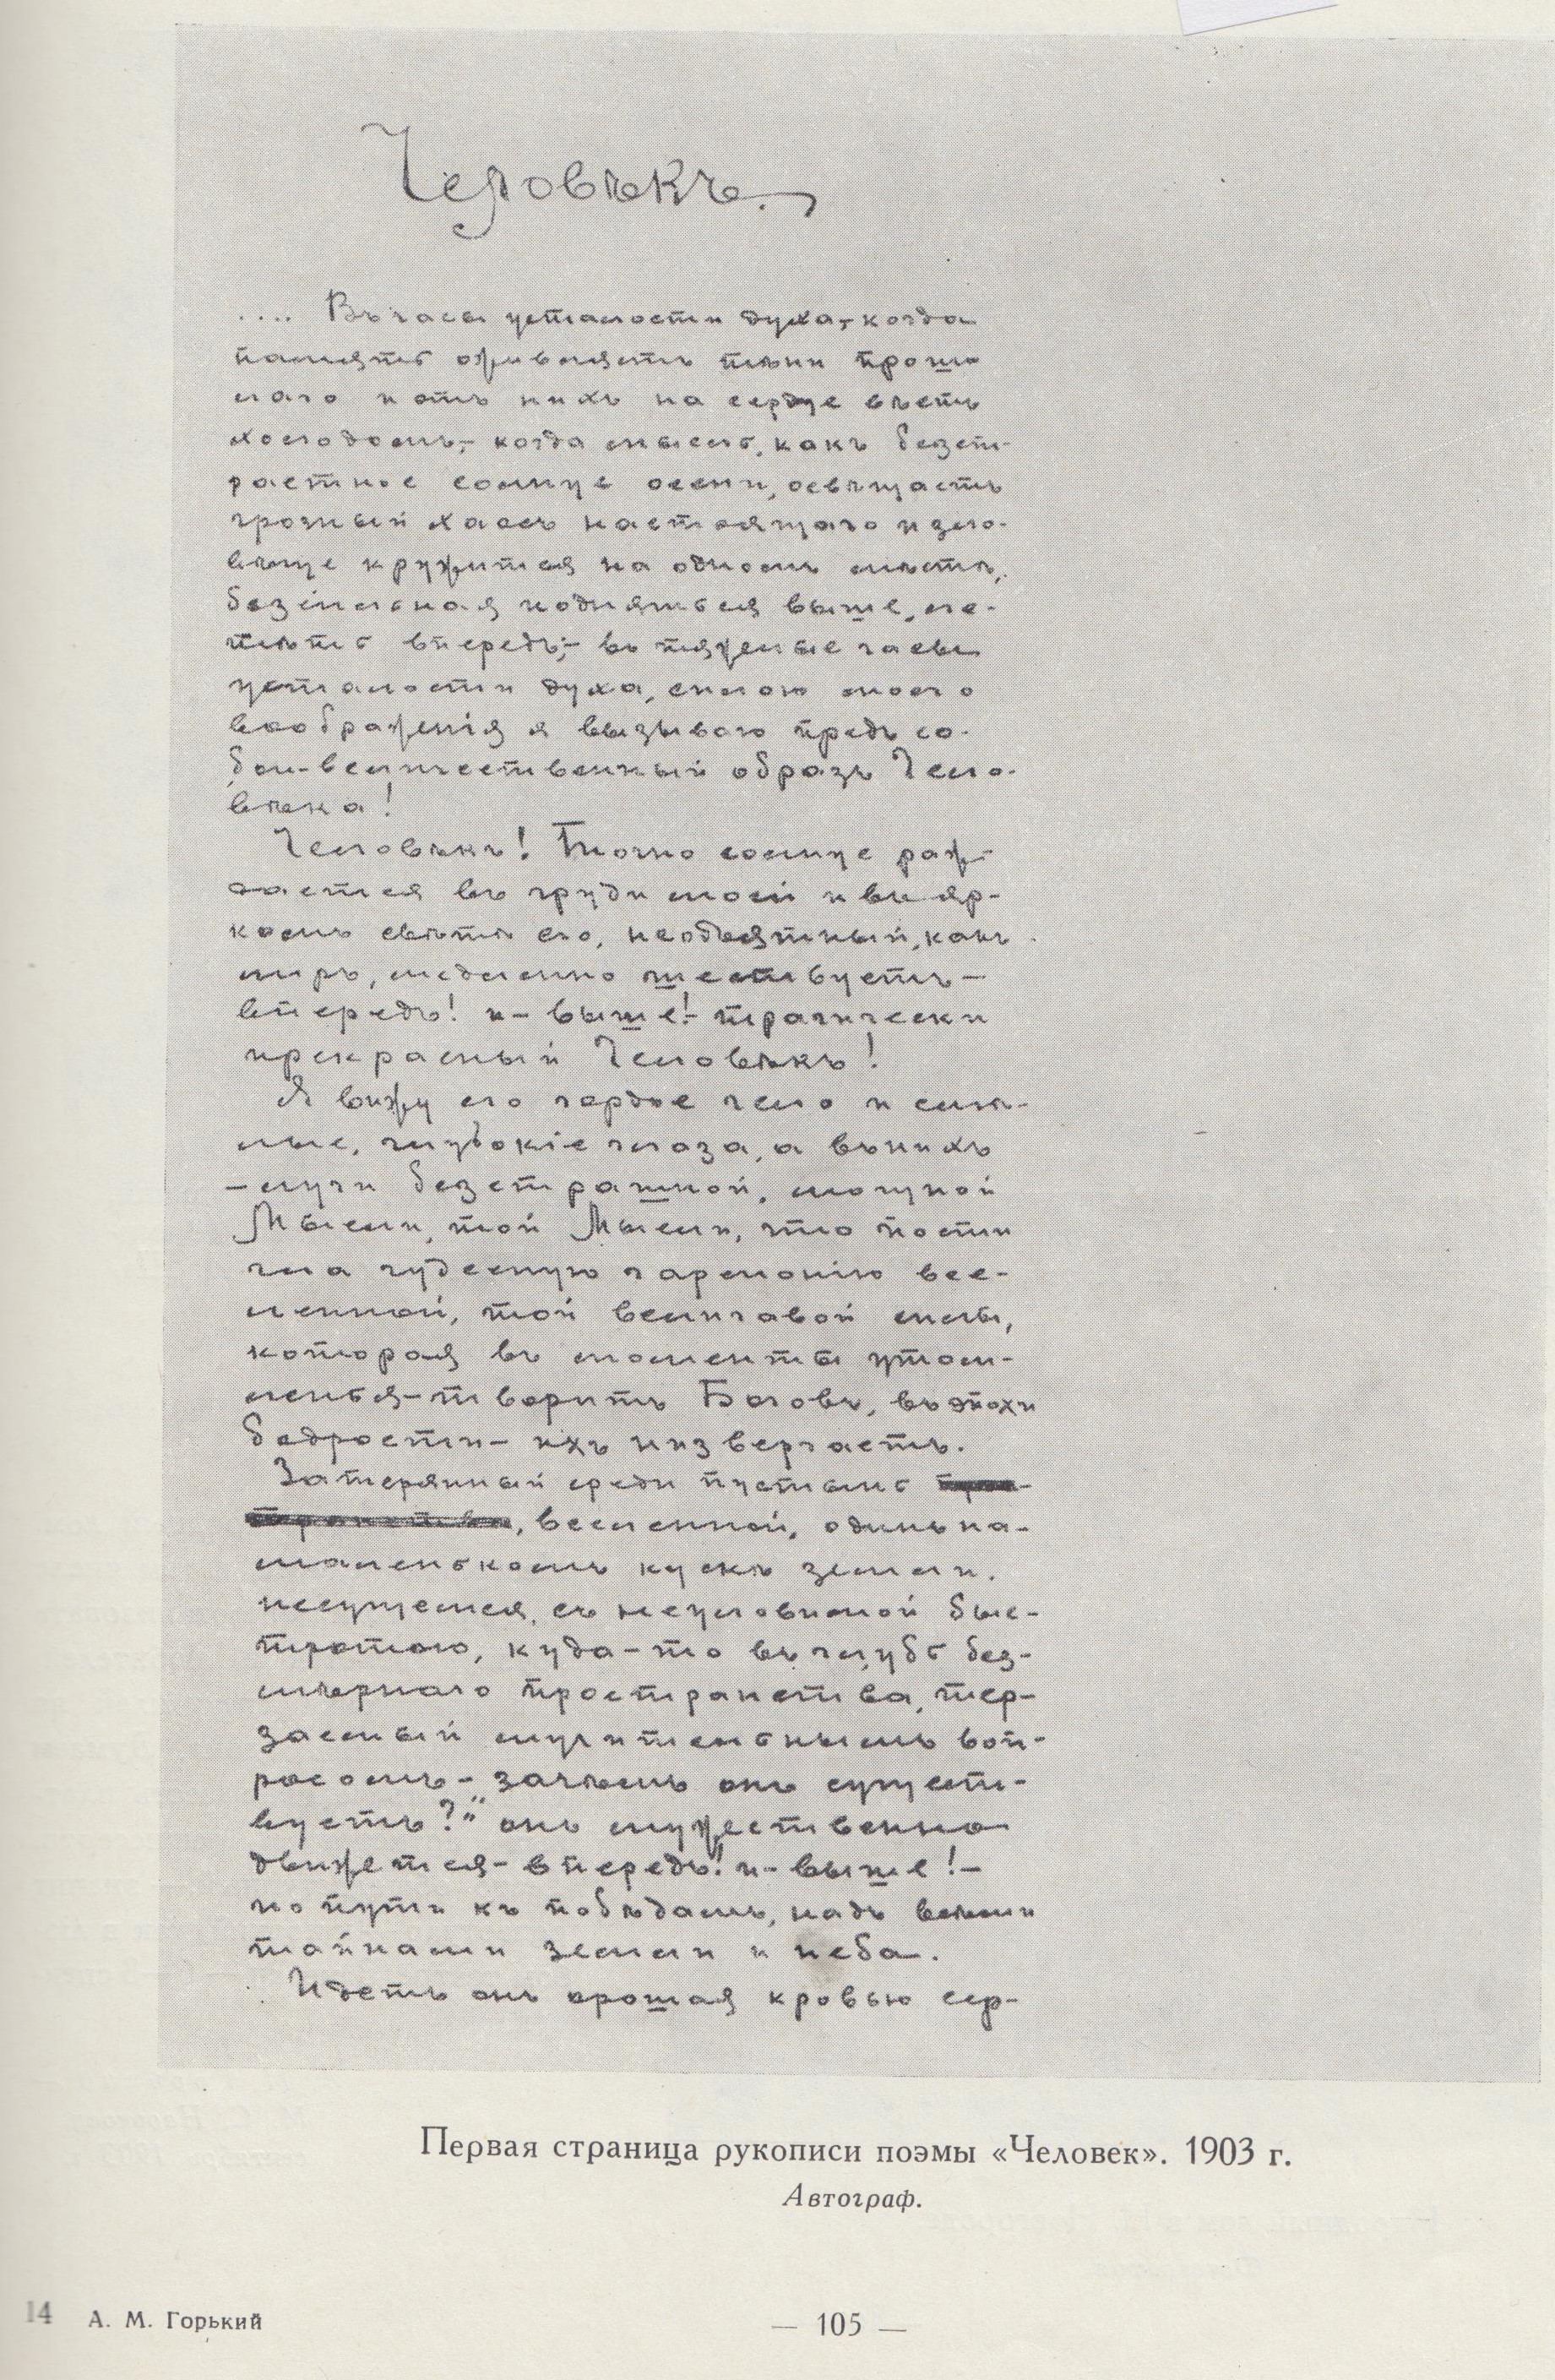 Человѣкъ.
.... Въ часы усталости духа,— когда
память оживляетъ тѣни прош-
лаго и отъ нихъ на сердце вѣетъ
холодомъ,— когда мысль, какъ безст-
растное солнце осени, освѣщаетъ
грозный хаосъ настоящаго и зло-
вѣще кружится на одномъ мѣстѣ,
безсильная подняться выше, ле-
тѣть впередъ,— въ тяжелые часы
усталости духа, силою моего
воображенія я вызываю предъ со-
бой—величественный образъ Чело-
вѣка!
Человѣкъ! Точно солнце рож-
дается въ груди моей и въ яр-
комъ свѣтѣ его, необъятный, какъ
міръ, медленно шествуетъ—
впередъ! и— выше!— трагически
прекрасный Человѣкъ!
Я вижу его гордое чело и смѣ-
лые, глубокіе глаза, а въ нихъ
— лучи безстрашной, могучей
Мысли, той Мысли, что пости
гла чудесную гармонію все-
ленной, той величавой силы,
которая въ моменты утом-
ленья—творитъ Боговъ, въ эпохи
бодрости— ихъ низвергаетъ.
Затерянный среди пустынь
, вселенной, одинъ на-
маленькомъ кускѣ земли,
несущемся, съ неуловимой быс-
тротою, куда-то въ глубь без-
мѣрнаго пространства, тер-
заемый мучительнымъ воп-
росомъ— „зачѣмъ онъ сущест-
вуетъ?“ онъ мужественно
движется— впередъ! и— выше!—
по пути къ побѣдамъ, надъ всѣми
тайнами земли и неба.
Идетъ онъ орошая кровью сер-
Первая страница рукописи поэмы «Человек». 1903 г.
Автограф.
14 А. М. Горький
— 105 —